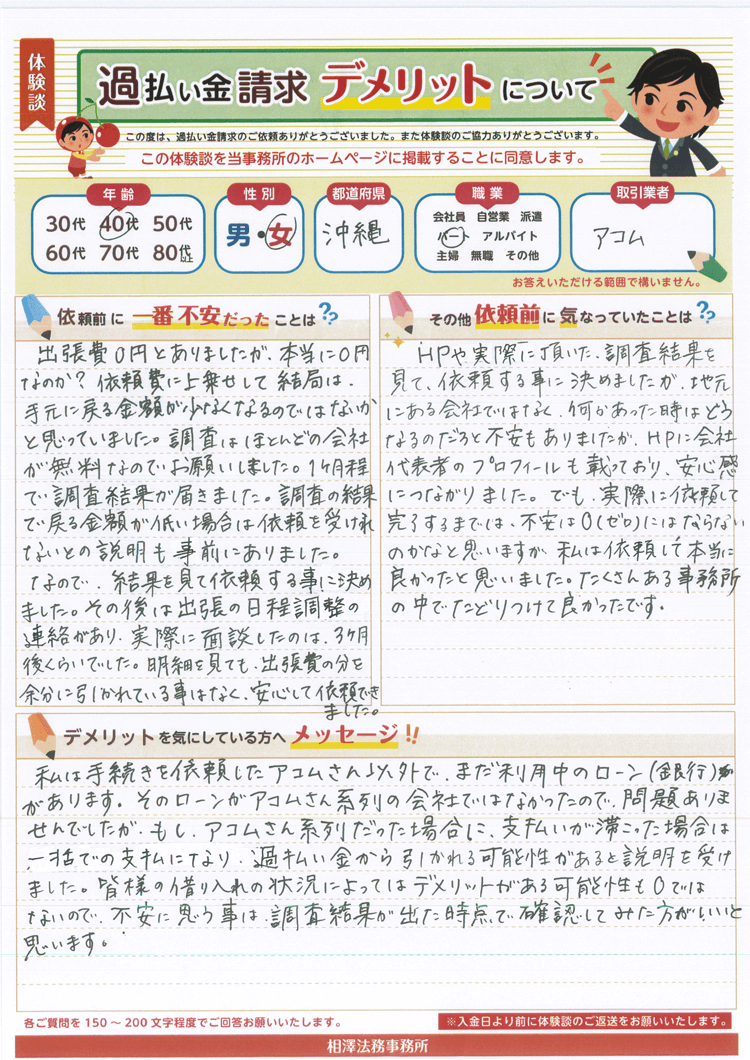 体験談
過払い金請求 デメリットについて
この度は、過払い金請求のご依頼ありがとうございました。また体験談のご協力ありがとうございます。
この体験談を当事務所のホームページに掲載することに同意します。
年齢
30代 40代 50代
60代 70代 80代以上
性別
男・女
都道府県
沖縄
職業
会社員 自営業 派遣
パート アルバイト
主婦 無職 その他
取引業者
アコム
お答えいただける範囲で構いません。
依頼前に 一番不安だった ことは??
出張費0円とありましたが、本当に0円
なのか？依頼費に上乗せして結局は、
手元に戻る金額が少なくなるのではないか
と思っていました。調査はほとんどの会社
が無料なのでお願いしました。1ヶ月程
で調査結果が届きました。調査の結果
で戻る金額が低い場合は依頼を受けれ
ないとの説明も事前にありました。
なので、結果を見て依頼する事に決め
ました。その後は出張の日程調整の
連絡があり、実際に面談したのは、3ヶ月
後くらいでした。明細を見ても、出張費の分を
余分に引かれている事はなく、安心して依頼でき
ました。
その他 依頼前に気なっていたことは??
HPや実際に頂いた、調査結果を
見て、依頼する事に決めましたが、地元
にある会社ではなく、何かあった時はどう
なるのだろと不安もありましたが、HPに会社
代表者のプロフィールも載っており、安心感
につながりました。でも、実際に依頼して
完了するまでは、不安は0(ゼロ)にはならない
のかなと思いますが、私は依頼して本当に
良かったと思いました。たくさんある事務所
の中でたどりつけて良かったです。
デメリットを気にしている方へ メッセージ!!
私は手続きを依頼したアコムさん以外で、まだ利用中のローン(銀行)
があります。そのローンがアコムさん系列の会社ではなかったので、問題ありま
せんでしたが、もし、アコムさん系列だった場合に、支払いが滞こった場合は
一括での支払になり、過払い金から引かれる可能性があると説明を受け
ました。皆様の借り入れの状況によってはデメリットがある可能性も0では
ないので、不安に思う事は、調査結果が出た時点で確認してみた方がいいと
思います。
各ご質問を150～200文字程度でご回答お願いいたします。
※入金日より前に体験談のご返送をお願いいたします。
相澤法務事務所